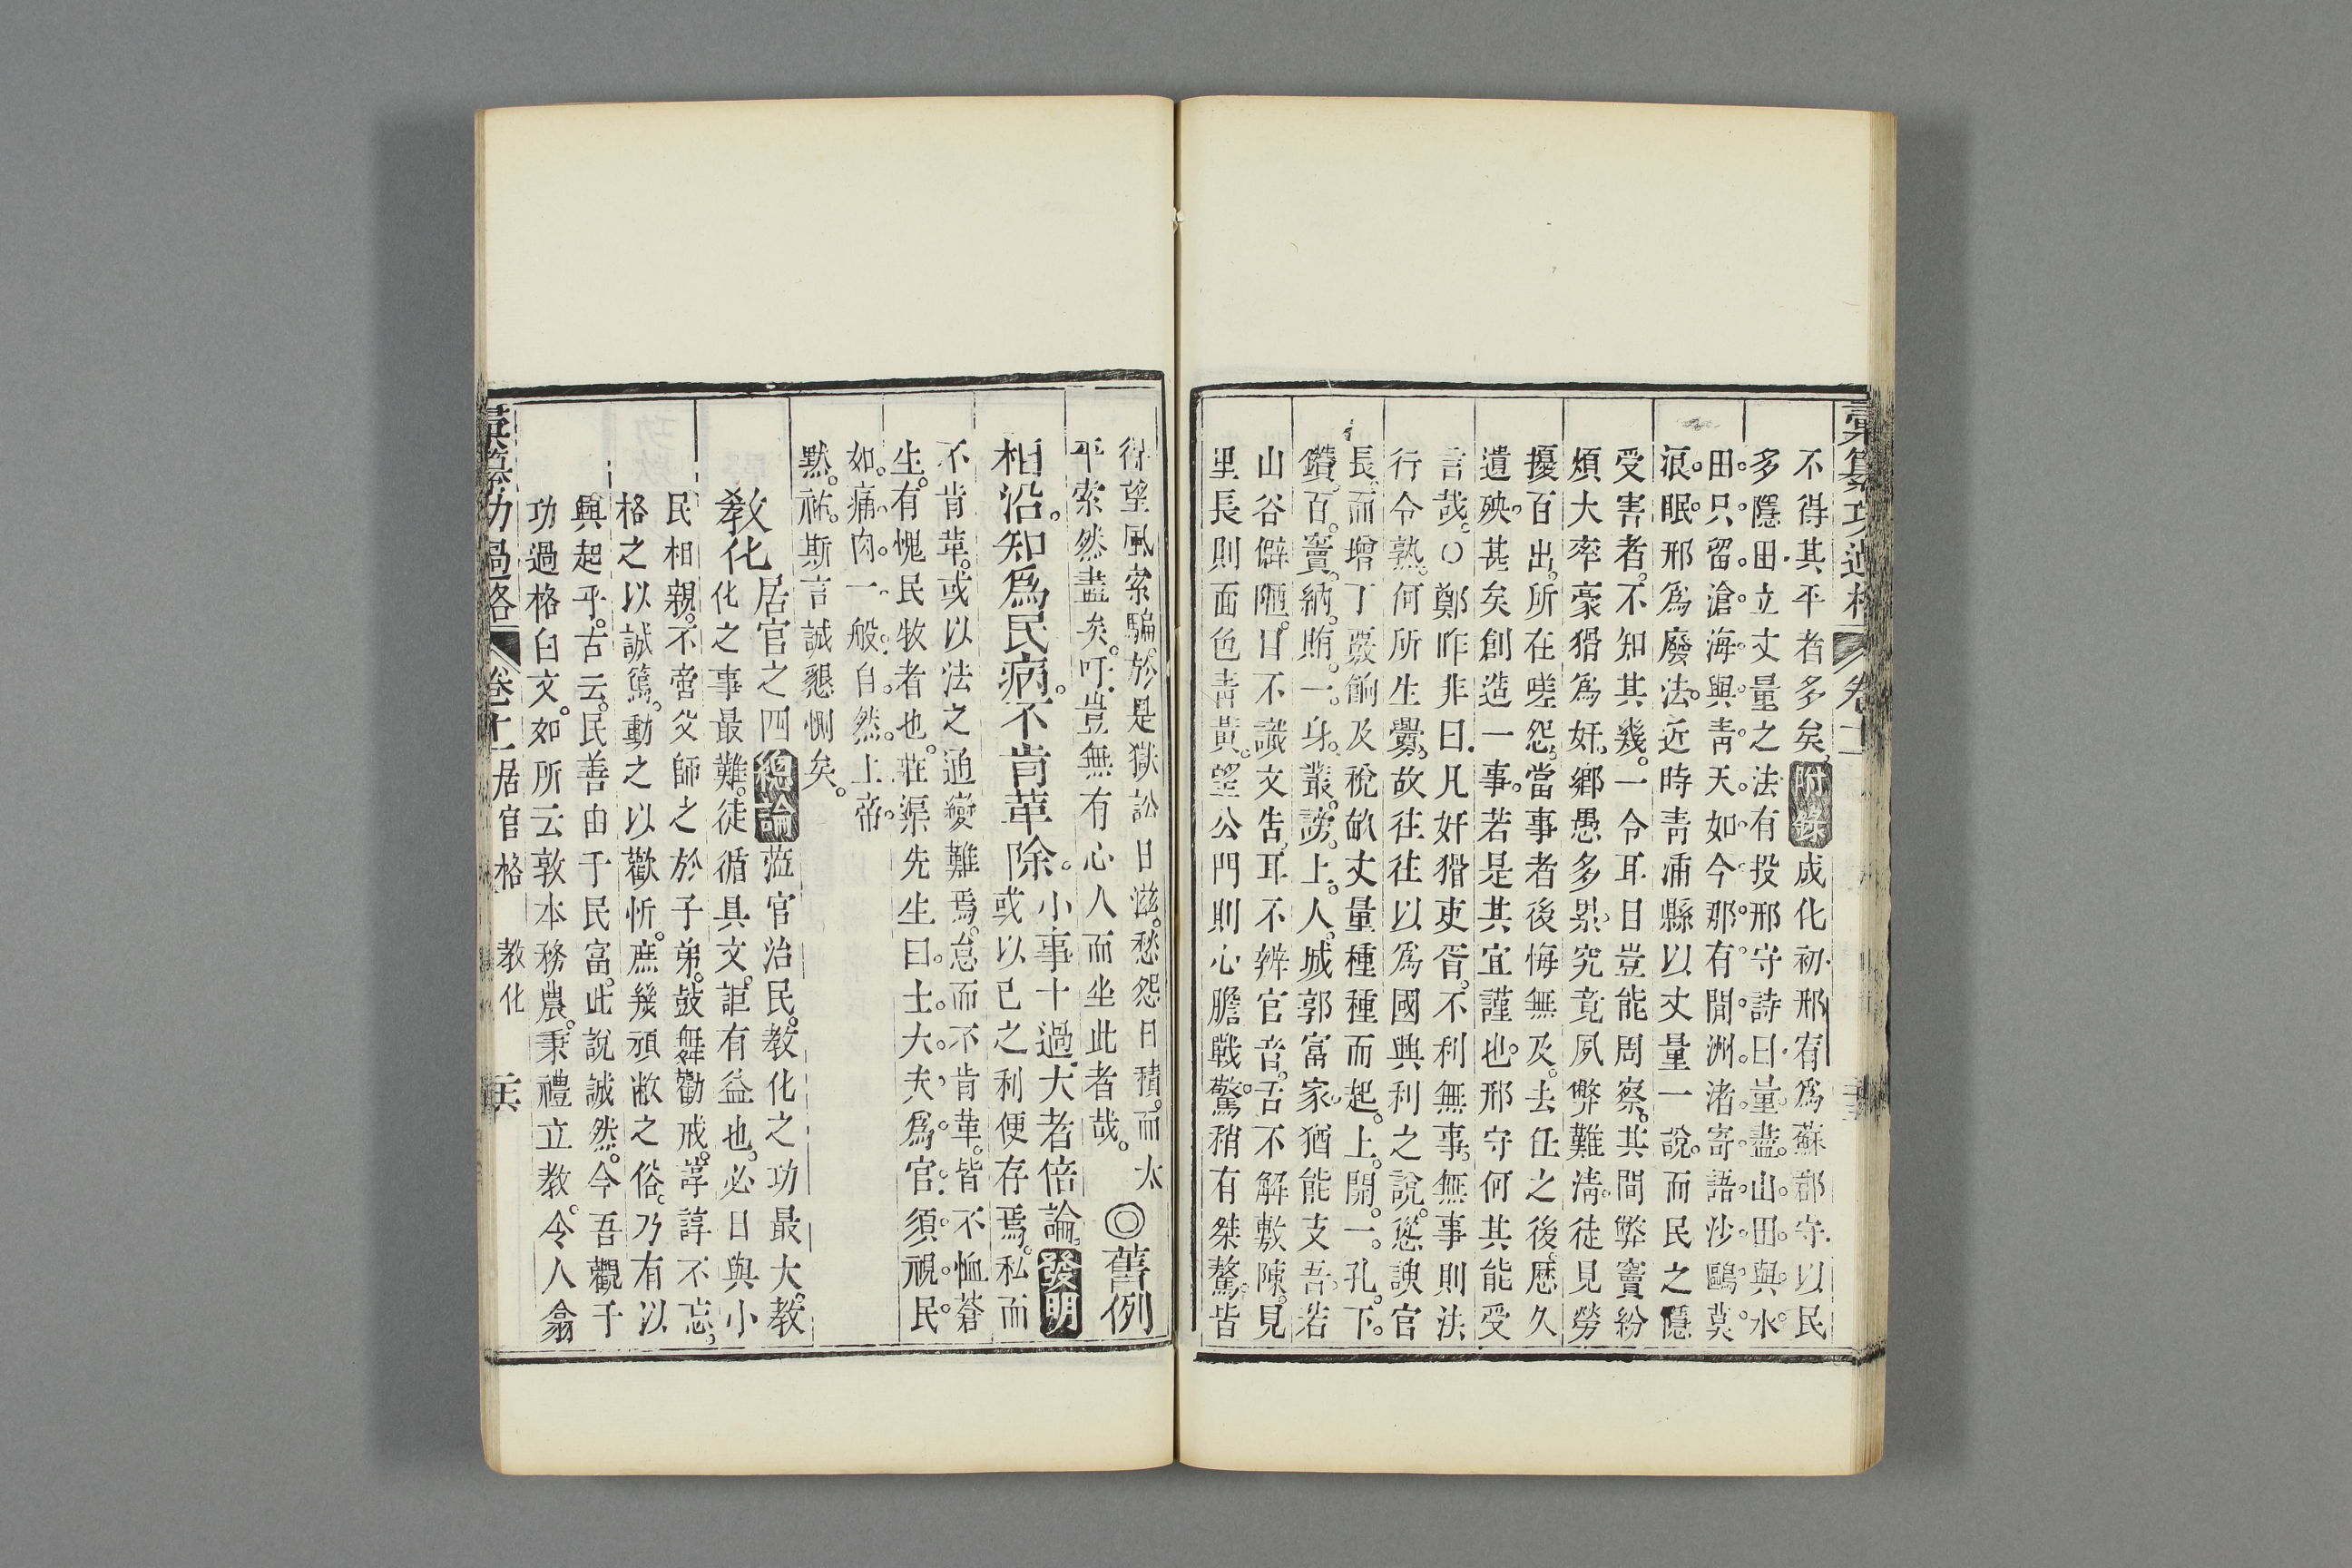 彙纂功過格 卷十一
不得其平者多矣附錄成化初邢宥爲蘇郡守以民
多隱田立丈量之法有投邢守詩曰量盡山田與水
田只留滄海與靑天如今那有閒洲渚寄語沙鷗莫
浪眠邢爲廢法近時靑浦縣以丈量一說而民之隱
受害者不知其幾一令耳目豈能周察其間弊竇紛
煩大率豪猾爲奸鄉愚多累究竟夙弊難淸徒見勞
擾百出所在嗟怨當事者後悔無及去任之後歷久
遺殃甚矣創造一事若是其宜謹也邢守何其能受
言哉〇鄭昨非曰凡奸猾吏胥不利無事無事則法
行令熟何所生釁故往往以爲國興利之說慫諛官
長而增丁覈餉及稅畝丈量種種而起上開一孔下
鑽百竇納賄一身叢謗上人城郭富家猶能支吾若
山谷僻陋目不識文告耳不辨官音舌不解敷陳見
里長則面色靑黃望公門則心膽戰驚稍有桀驁皆
得望風索騙於是獄訟日滋愁怨日積而太
平索然盡矣吁豈無有心人而坐此者哉
◎舊例
相沿知爲民病不肯革除小事十過大者倍論發明
或以己之利便存焉私而
不肯革或以法之通變難焉怠而不肯革皆不恤蒼
生有愧民牧者也莊渠先生曰士大夫爲官須視民
如痛肉一般自然上帝
默祐斯言誠懇惻矣
敎化居官之四總論蒞官治民敎化之功最大敎
化之事最難徒循具文詎有益也必日與小
民相親不啻父師之於子弟鼓舞勸戒諄諄不忘
格之以誠篤動之以歡忻庶幾頑敝之俗乃有以
興起乎古云民善由于民富此說誠然今吾觀于
功過格臼文如所云敦本務農秉禮立敎令人翕
彙纂功過格 卷十一居官格 敎化 二六